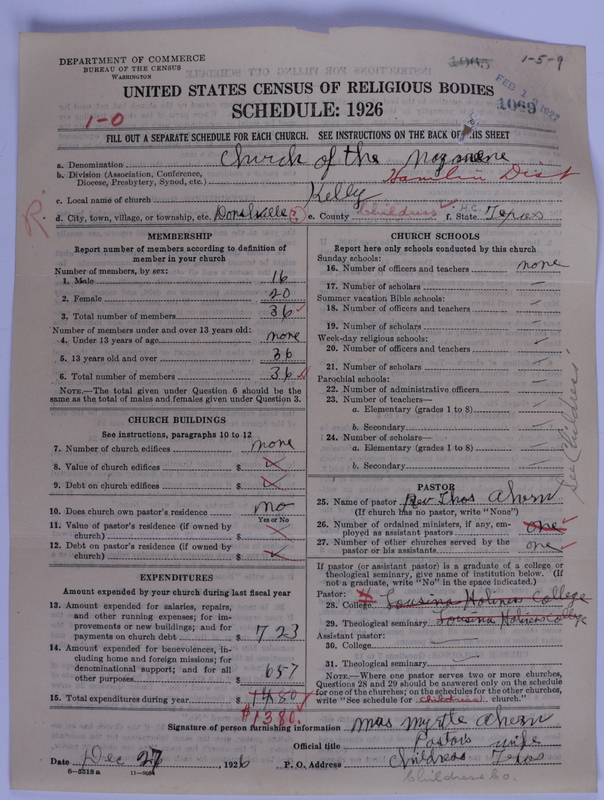 DEPARTMENT OF COMMERCE
BUREAU OF THE CENSUS
WASHINGTON
1065
1-5-9
FEB 1 1927
1069
UNITED STATES CENSUS OF RELIGIOUS BODIES
SCHEDULE: 1926
1-0
FILL OUT A SEPARATE SCHEDULE FOR EACH CHURCH. SEE INSTRUCTIONS ON THE BACK OF THIS SHEET
a. Denomination Church of the Nazarene
b. Division (Association, Conference, Diocese, Presbytery, Synod, etc.) Hamlin Dist
c. Local name of church Kelly
R.
d. City, town, village, or township, etc. Donelville e. County Childress H.C. f. State Texas
MEMBERSHIP
Report number of members according to definition of member in your church
Number of members, by sex:
1. Male 16
2. Female 20
3. Total number of members 36
Number of members under and over 13 years old:
4. Under 13 years of age none
5. 13 years old and over 36
6. Total number of members 36
NOTE.—The total given under Question 6 should be the same as the total of males and females given under Question 3.
CHURCH BUILDINGS
See instructions, paragraphs 10 to 12
7. Number of church edifices none
8. Value of church edifices $
9. Debt on church edifices $
10. Does church own pastor's residence? no
Yes or No
11. Value of pastor's residence (if owned by church) $
12. Debt on pastor's residence (if owned by church) $
EXPENDITURES
Amount expended by your church during last fiscal year
13. Amount expended for salaries, repairs, and other running expenses; for improvements or new buildings; and for payments on church debt $ 723
14. Amount expended for benevolences, including home and foreign missions; for denominational support; and for all other purposes $ 657
15. Total expenditures during year $ 1480
$1380.
CHURCH SCHOOLS
Report here only schools conducted by this church
Sunday schools:
16. Number of officers and teachers none
17. Number of scholars
Summer vacation Bible schools:
18. Number of officers and teachers
19. Number of scholars
Week-day religious schools:
20. Number of officers and teachers
21. Number of scholars
Parochial schools:
22. Number of administrative officers
23. Number of teachers—
a. Elementary (grades 1 to 8)
b. Secondary
24. Number of scholars—
a. Elementary (grades 1 to 8)
b. Secondary
See Childress
PASTOR
25. Name of pastor Rev Thos Ahern
(If church has no pastor, write "None")
26. Number of ordained ministers, if any, employed as assistant pastors one
27. Number of other churches served by the pastor or his assistants one
If pastor (or assistant pastor) is a graduate of a college or theological seminary, give name of institution below. (If not a graduate, write "No" in the space indicated.)
Pastor:
28. College Lousina Holiness College
29. Theological seminary Lousina Holiness College
Assistant pastor:
30. College
31. Theological seminary
NOTE.—Where one pastor serves two or more churches, Questions 28 and 29 should be answered only on the schedule for one of the churches; on the schedules for the other churches, write "See schedule for Childress church."
Signature of person furnishing information Mrs Myrtle Ahern
Official title Pastors wife
Date Dec 27, 1926 P. O. Address Childress Texas
6-5318a 11-9054
Childress Co.